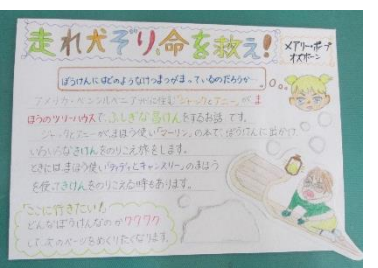 走れ犬ぞり命を救え!
メアリー・ポープ
オズボーン
ぼうけんにはどのようなけつまつがまっているのだろうか…
アメリカ・ペンシルベニア州に住む「ジャックとアニー」がま
ほうのツリーハウスで、ふしぎな冒けんをするお話です。
ジャックとアニーが、まほう使い「マーリン」の本で、ぼうけんに出かけ、
いろいろなきけんをのりこえ旅をします。
ときには、まほう使い「テディとキャスリー」のまほう
を使ってきけんをのりこえる時もあります。
「ここに行きたい!」
どんなぼうけんなのかワクワク
して次のページをめくりたくなります。